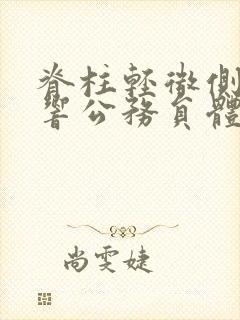 脊柱輕微側
響公務員體
尚雯婕